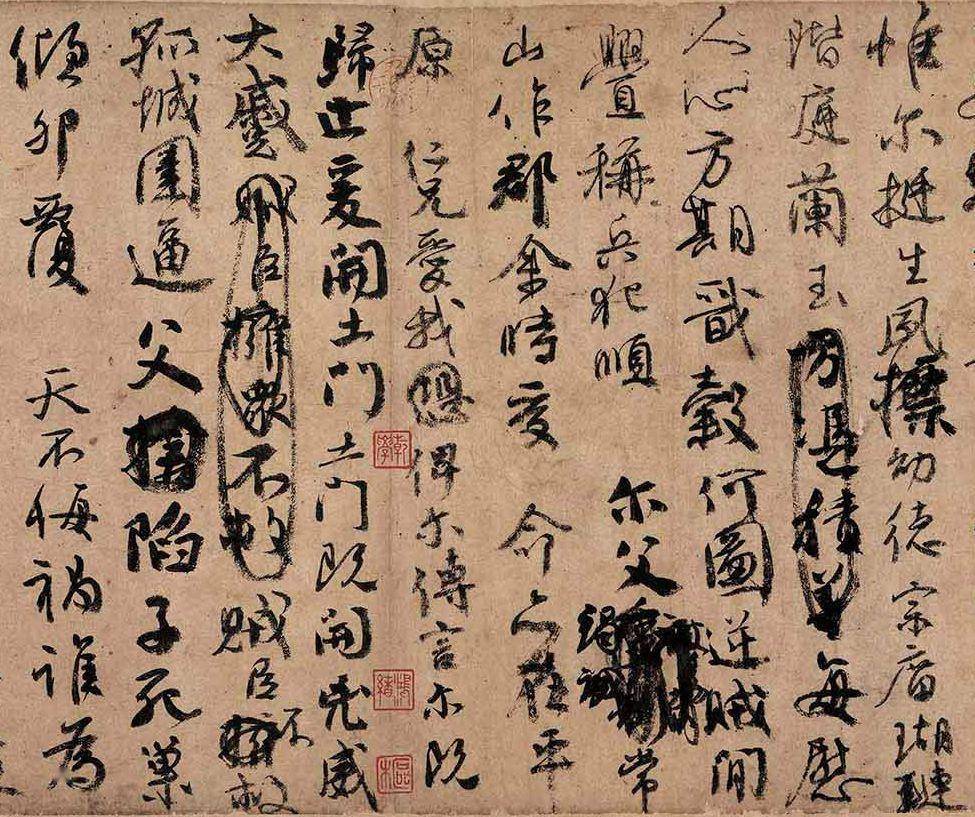 惟尔挺生夙標幼德宗廟瑚璉
階庭蘭玉方憑積善每慰
人心方期戩穀何圖逆賊間
釁稱兵犯順尔父竭誠常
山作郡余時受命亦在平
原仁兄愛我恐俾尔傳言尔既
歸止爰開土門土門既開兇威
大蹙賊臣擁衆不救賊臣不救
孤城圍逼父擒陷子死巢
傾卵覆天不悔禍誰為